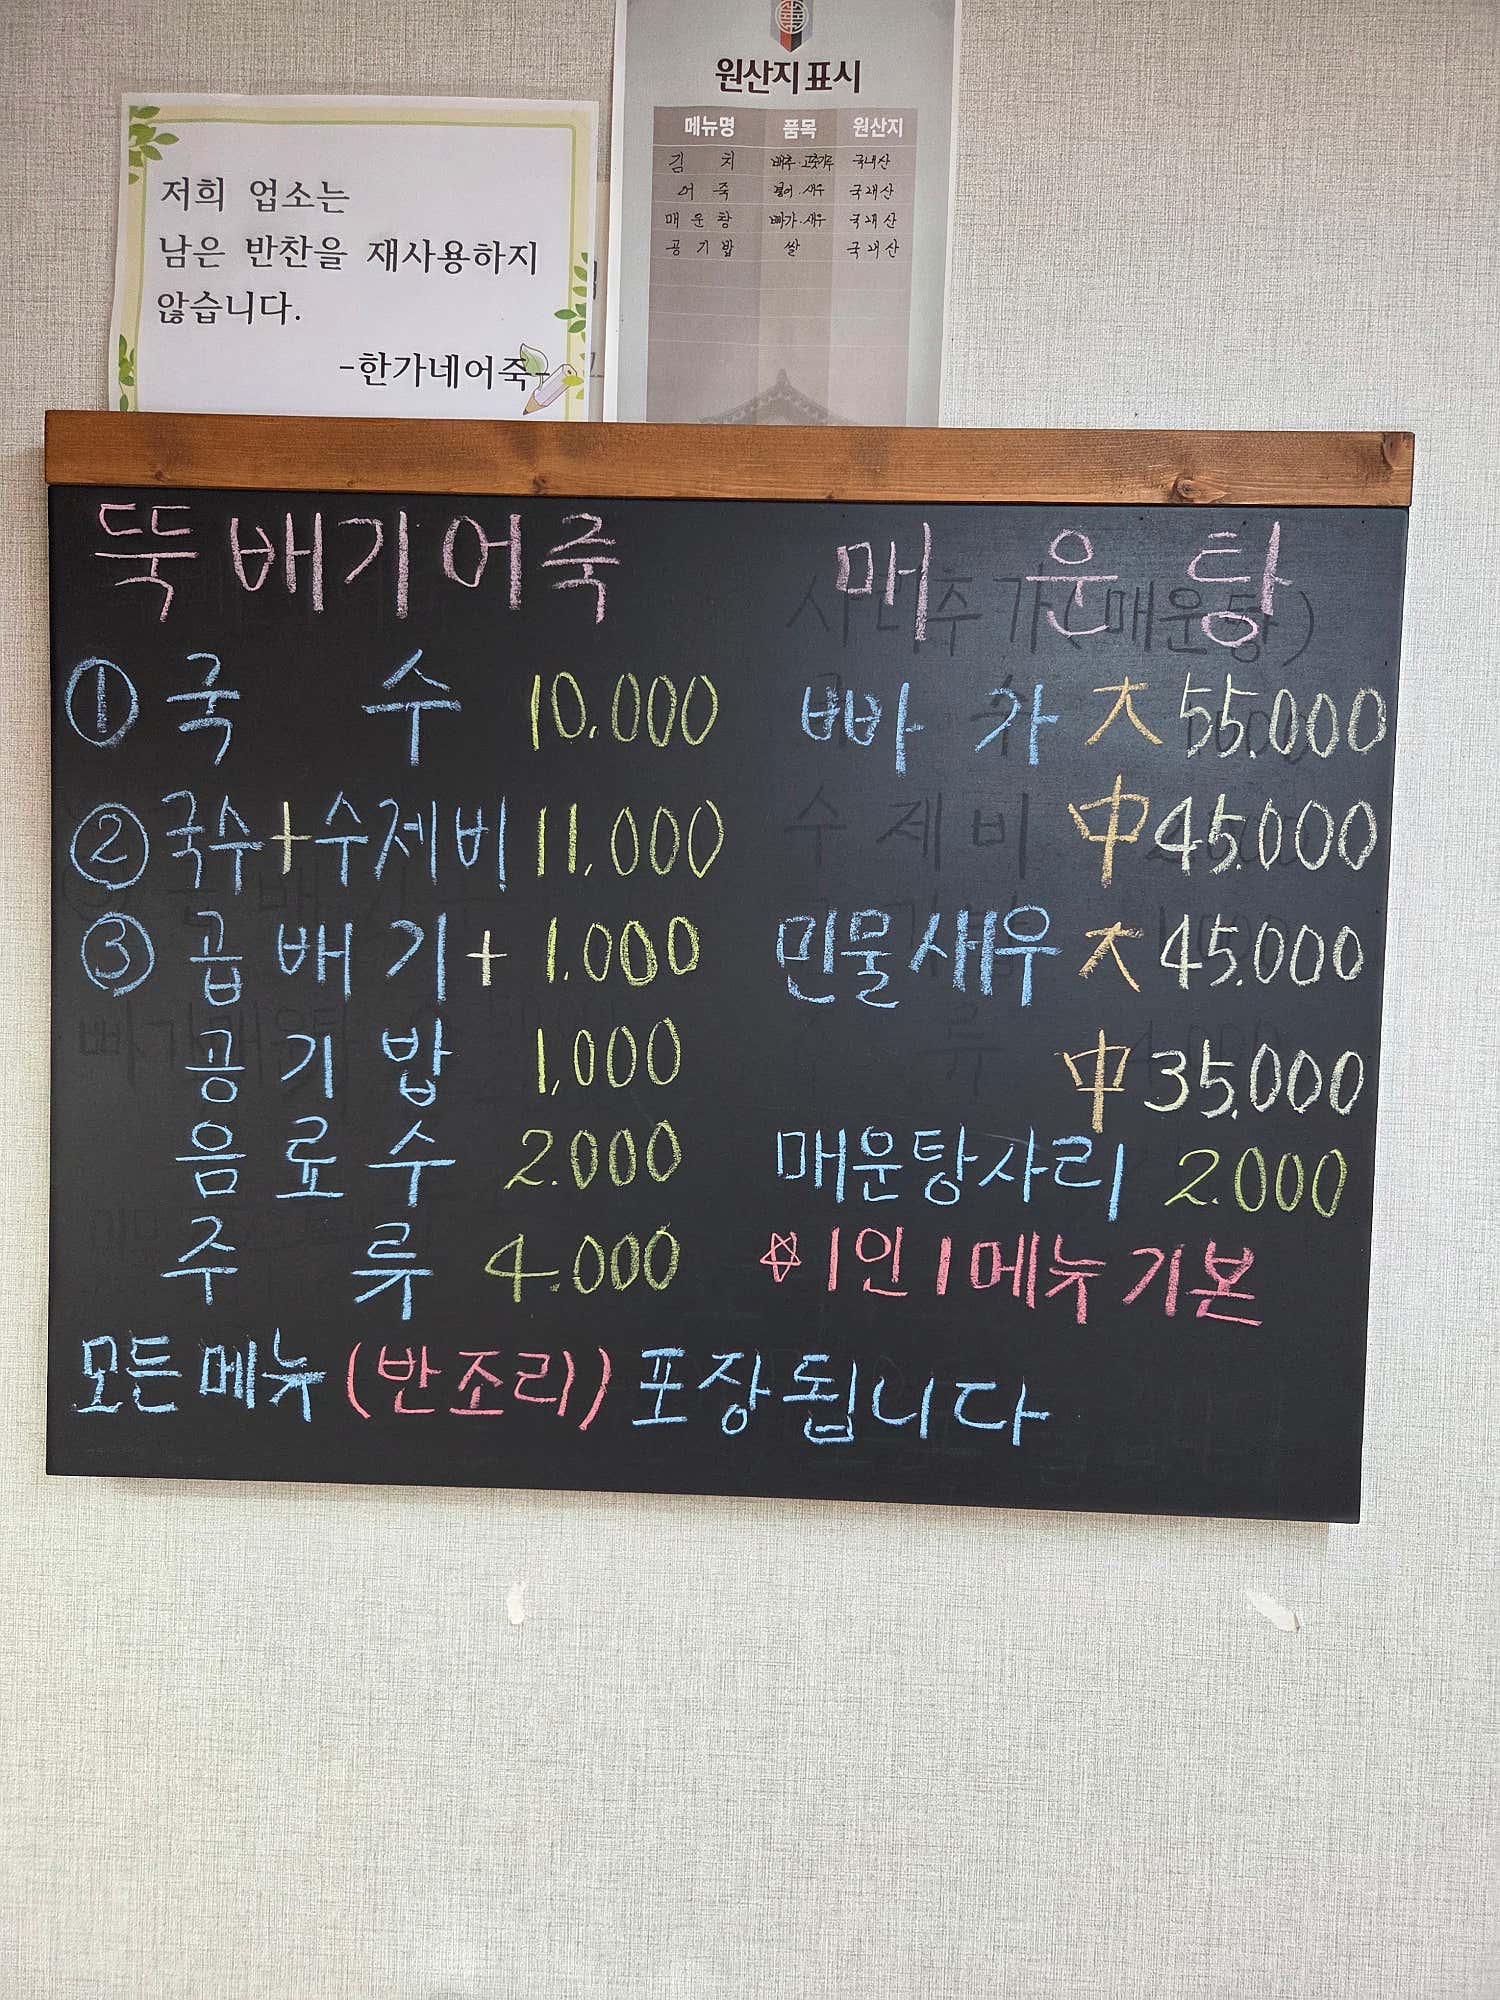 저희 업소는
남은 반찬을 재사용하지
않습니다.
-한가네어죽-
원산지 표시
메뉴명 품목 원산지
김 치 배추·고춧가루 국내산
어 죽 새우 국내산
매 운 탕 빠가·새우 국내산
공 기 밥 쌀 국내산
뚝배기어죽
① 국 수 10.000
② 국수+수제비 11.000
③ 곱배기+ 1.000
공기밥 1,000
음료수 2.000
주 류 4.000
매 운 탕
빠 가 大 55.000
中 45.000
민물새우 大 45.000
中 35.000
매운탕사리 2.000
☆ 1인 1메뉴 기본
모든메뉴 (반조리) 포장됩니다